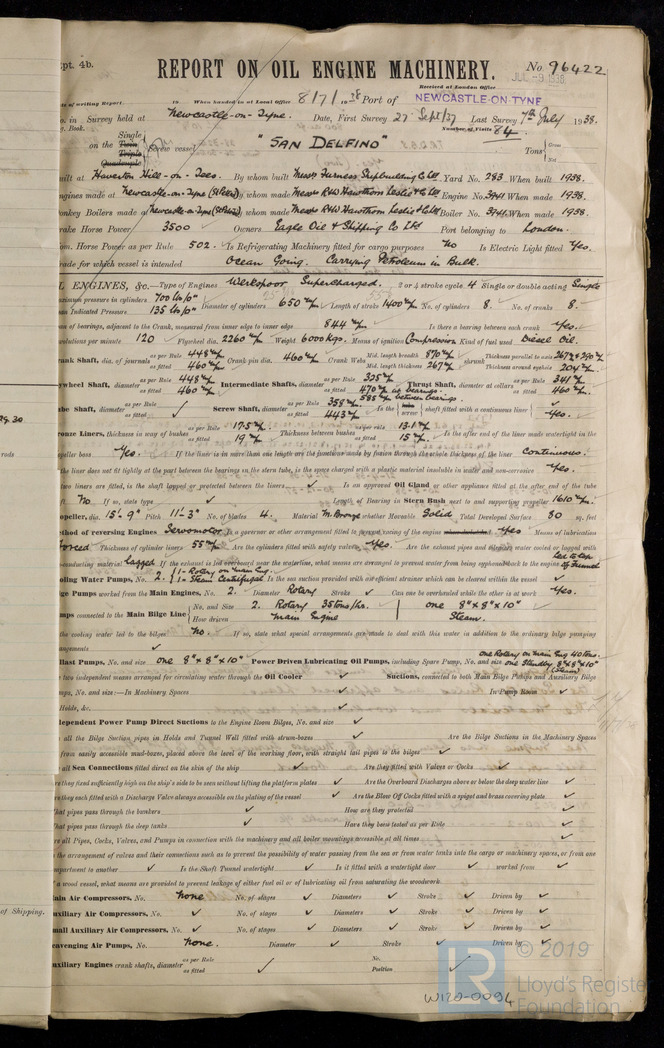 Rpt. 4b.
REPORT ON OIL ENGINE MACHINERY.
No. 96422
JUL -9 1938
Received at London Office
of writing Report. 19 When handed in at Local Office 8/7/1938 Port of NEWCASTLE-ON-TYNE
in Survey held at Newcastle-on-Tyne. Date, First Survey 27 Sept/37 Last Survey 7th July 1938.
Book. Number of Visits 84.
on the Single Twin Triple Quadruple Screw vessel "SAN DELFINO" Tons Gross Net
built at Haverton Hill-on-Tees. By whom built Messrs Furness Shipbuilding Co Ltd Yard No. 283 When built 1938.
Engines made at Newcastle-on-Tyne (St Peters) By whom made Messrs R&W Hawthorn Leslie & Co Ltd Engine No. 3941 When made 1938.
Donkey Boilers made at Newcastle-on-Tyne (St Peters) By whom made Messrs R&W Hawthorn Leslie & Co Ltd Boiler No. 3941 When made 1938.
Brake Horse Power 3500 Owners Eagle Oil & Shipping Co Ltd Port belonging to London.
Nom. Horse Power as per Rule 502. Is Refrigerating Machinery fitted for cargo purposes No Is Electric Light fitted Yes.
Trade for which vessel is intended Ocean Going. Carrying Petroleum in Bulk.
OIL ENGINES, &c.—Type of Engines Werkspoor Supercharged. 2 or 4 stroke cycle 4 Single or double acting Single
Maximum pressure in cylinders 700 lbs/□" Diameter of cylinders 650 m/m Length of stroke 1400 m/m No. of cylinders 8. No. of cranks 8.
Mean Indicated Pressure 135 lbs/□"
of bearings, adjacent to the Crank, measured from inner edge to inner edge 844 m/m Is there a bearing between each crank Yes.
Revolutions per minute 120 Flywheel dia. 2260 m/m Weight 6000 kgs. Means of ignition Compression Kind of fuel used Diesel Oil.
Crank Shaft, dia. of journals as per Rule 448 m/m as fitted 460 m/m Crank pin dia. 460 m/m Crank Webs Mid. length breadth 870 m/m Mid. length thickness 267 m/m shrunk Thickness parallel to axis 267 & 290 m/m Thickness around eyehole 204 m/m
Flywheel Shaft, diameter as per Rule 448 m/m as fitted 460 m/m Intermediate Shafts, diameter as per Rule 325 m/m as fitted 470 m/m in bearings. 385 m/m between bearings. Thrust Shaft, diameter at collars as per Rule 341 m/m as fitted 460 m/m
Tube Shaft, diameter as per Rule as fitted ✓ Screw Shaft, diameter as per Rule 358 m/m as fitted 443 m/m Is the tube screw shaft fitted with a continuous liner ✓ Yes.
Bronze Liners, thickness in way of bushes as per Rule 17.5 m/m as fitted 19 m/m Thickness between bushes as per rule 13.1 m/m as fitted 15 m/m Is the after end of the liner made watertight in the
propeller boss Yes. If the liner is in more than one length are the junctions made by fusion through the whole thickness of the liner Continuous.
the liner does not fit tightly at the part between the bearings in the stern tube, is the space charged with a plastic material insoluble in water and non-corrosive Yes.
two liners are fitted, is the shaft lapped or protected between the liners ✓ Is an approved Oil Gland or other appliance fitted at the after end of the tube
No. If so, state type ✓ Length of Bearing in Stern Bush next to and supporting propeller 1610 m/m.
Propeller, dia. 15'-9" Pitch 11'-3" No. of blades 4. Material M. Bronze whether Moveable Solid Total Developed Surface 80 sq. feet
Method of reversing Engines Servomotor Is a governor or other arrangement fitted to prevent racing of the engine Yes Means of lubrication
Forced Thickness of cylinder liners 55 m/m Are the cylinders fitted with safety valves Yes. Are the exhaust pipes and silencers water cooled or lagged with
non-conducting material Lagged If the exhaust is led overboard near the waterline, what means are arranged to prevent water from being syphoned back to the engine Led to top of Funnel
Cooling Water Pumps, No. 2. { 1 - Rotary on Main Eng. 1 - Steam Centrifugal Is the sea suction provided with an efficient strainer which can be cleared within the vessel ✓
Bilge Pumps worked from the Main Engines, No. 2. Diameter Rotary Stroke ✓ Can one be overhauled while the other is at work Yes.
Pumps connected to the Main Bilge Line { No. and Size 2. Rotary 35 tons/hr. one 8" x 8" x 10"
How driven Main Engine Steam.
the cooling water led to the bilges No. If so, state what special arrangements are made to deal with this water in addition to the ordinary bilge pumping
arrangements ✓
Ballast Pumps, No. and size one 8" x 8" x 10" Power Driven Lubricating Oil Pumps, including Spare Pump, No. and size one Rotary on Main Eng 40 tons. one Standby 8" x 8" x 10" (Steam)
two independent means arranged for circulating water through the Oil Cooler ✓ Suctions, connected to both Main Bilge Pumps and Auxiliary Bilge
Pumps, No. and size:—In Machinery Spaces ✓ In Pump Room ✓
Holds, &c. ✓
Independent Power Pump Direct Suctions to the Engine Room Bilges, No. and size ✓
all the Bilge Suction pipes in Holds and Tunnel Well fitted with strum-boxes ✓ Are the Bilge Suctions in the Machinery Spaces
from easily accessible mud-boxes, placed above the level of the working floor, with straight tail pipes to the bilges ✓
all Sea Connections fitted direct on the skin of the ship ✓ Are they fitted with Valves or Cocks ✓
Are they fixed sufficiently high on the ship's side to be seen without lifting the platform plates ✓ Are the Overboard Discharges above or below the deep water line ✓
Are they each fitted with a Discharge Valve always accessible on the plating of the vessel ✓ Are the Blow Off Cocks fitted with a spigot and brass covering plate ✓
What pipes pass through the bunkers ✓ How are they protected ✓
What pipes pass through the deep tanks ✓ Have they been tested as per Rule ✓
Are all Pipes, Cocks, Valves, and Pumps in connection with the machinery and all boiler mountings accessible at all times ✓
the arrangement of valves and their connections such as to prevent the possibility of water passing from the sea or from water tanks into the cargo or machinery spaces, or from one
compartment to another ✓ Is the Shaft Tunnel watertight ✓ Is it fitted with a watertight door ✓ worked from ✓
a wood vessel, what means are provided to prevent leakage of either fuel oil or of lubricating oil from saturating the woodwork
Main Air Compressors, No. None. No. of stages ✓ Diameters ✓ Stroke ✓ Driven by ✓
Auxiliary Air Compressors, No. ✓ No. of stages ✓ Diameters ✓ Stroke ✓ Driven by ✓
Small Auxiliary Air Compressors, No. ✓ No. of stages ✓ Diameters ✓ Stroke ✓ Driven by ✓
Scavenging Air Pumps, No. None. Diameter ✓ Stroke ✓ Driven by ✓
Auxiliary Engines crank shafts, diameter as per Rule as fitted ✓ No. Position ✓
of Shipping.
W129-0094
© 2019
Lloyd's Register
Foundation